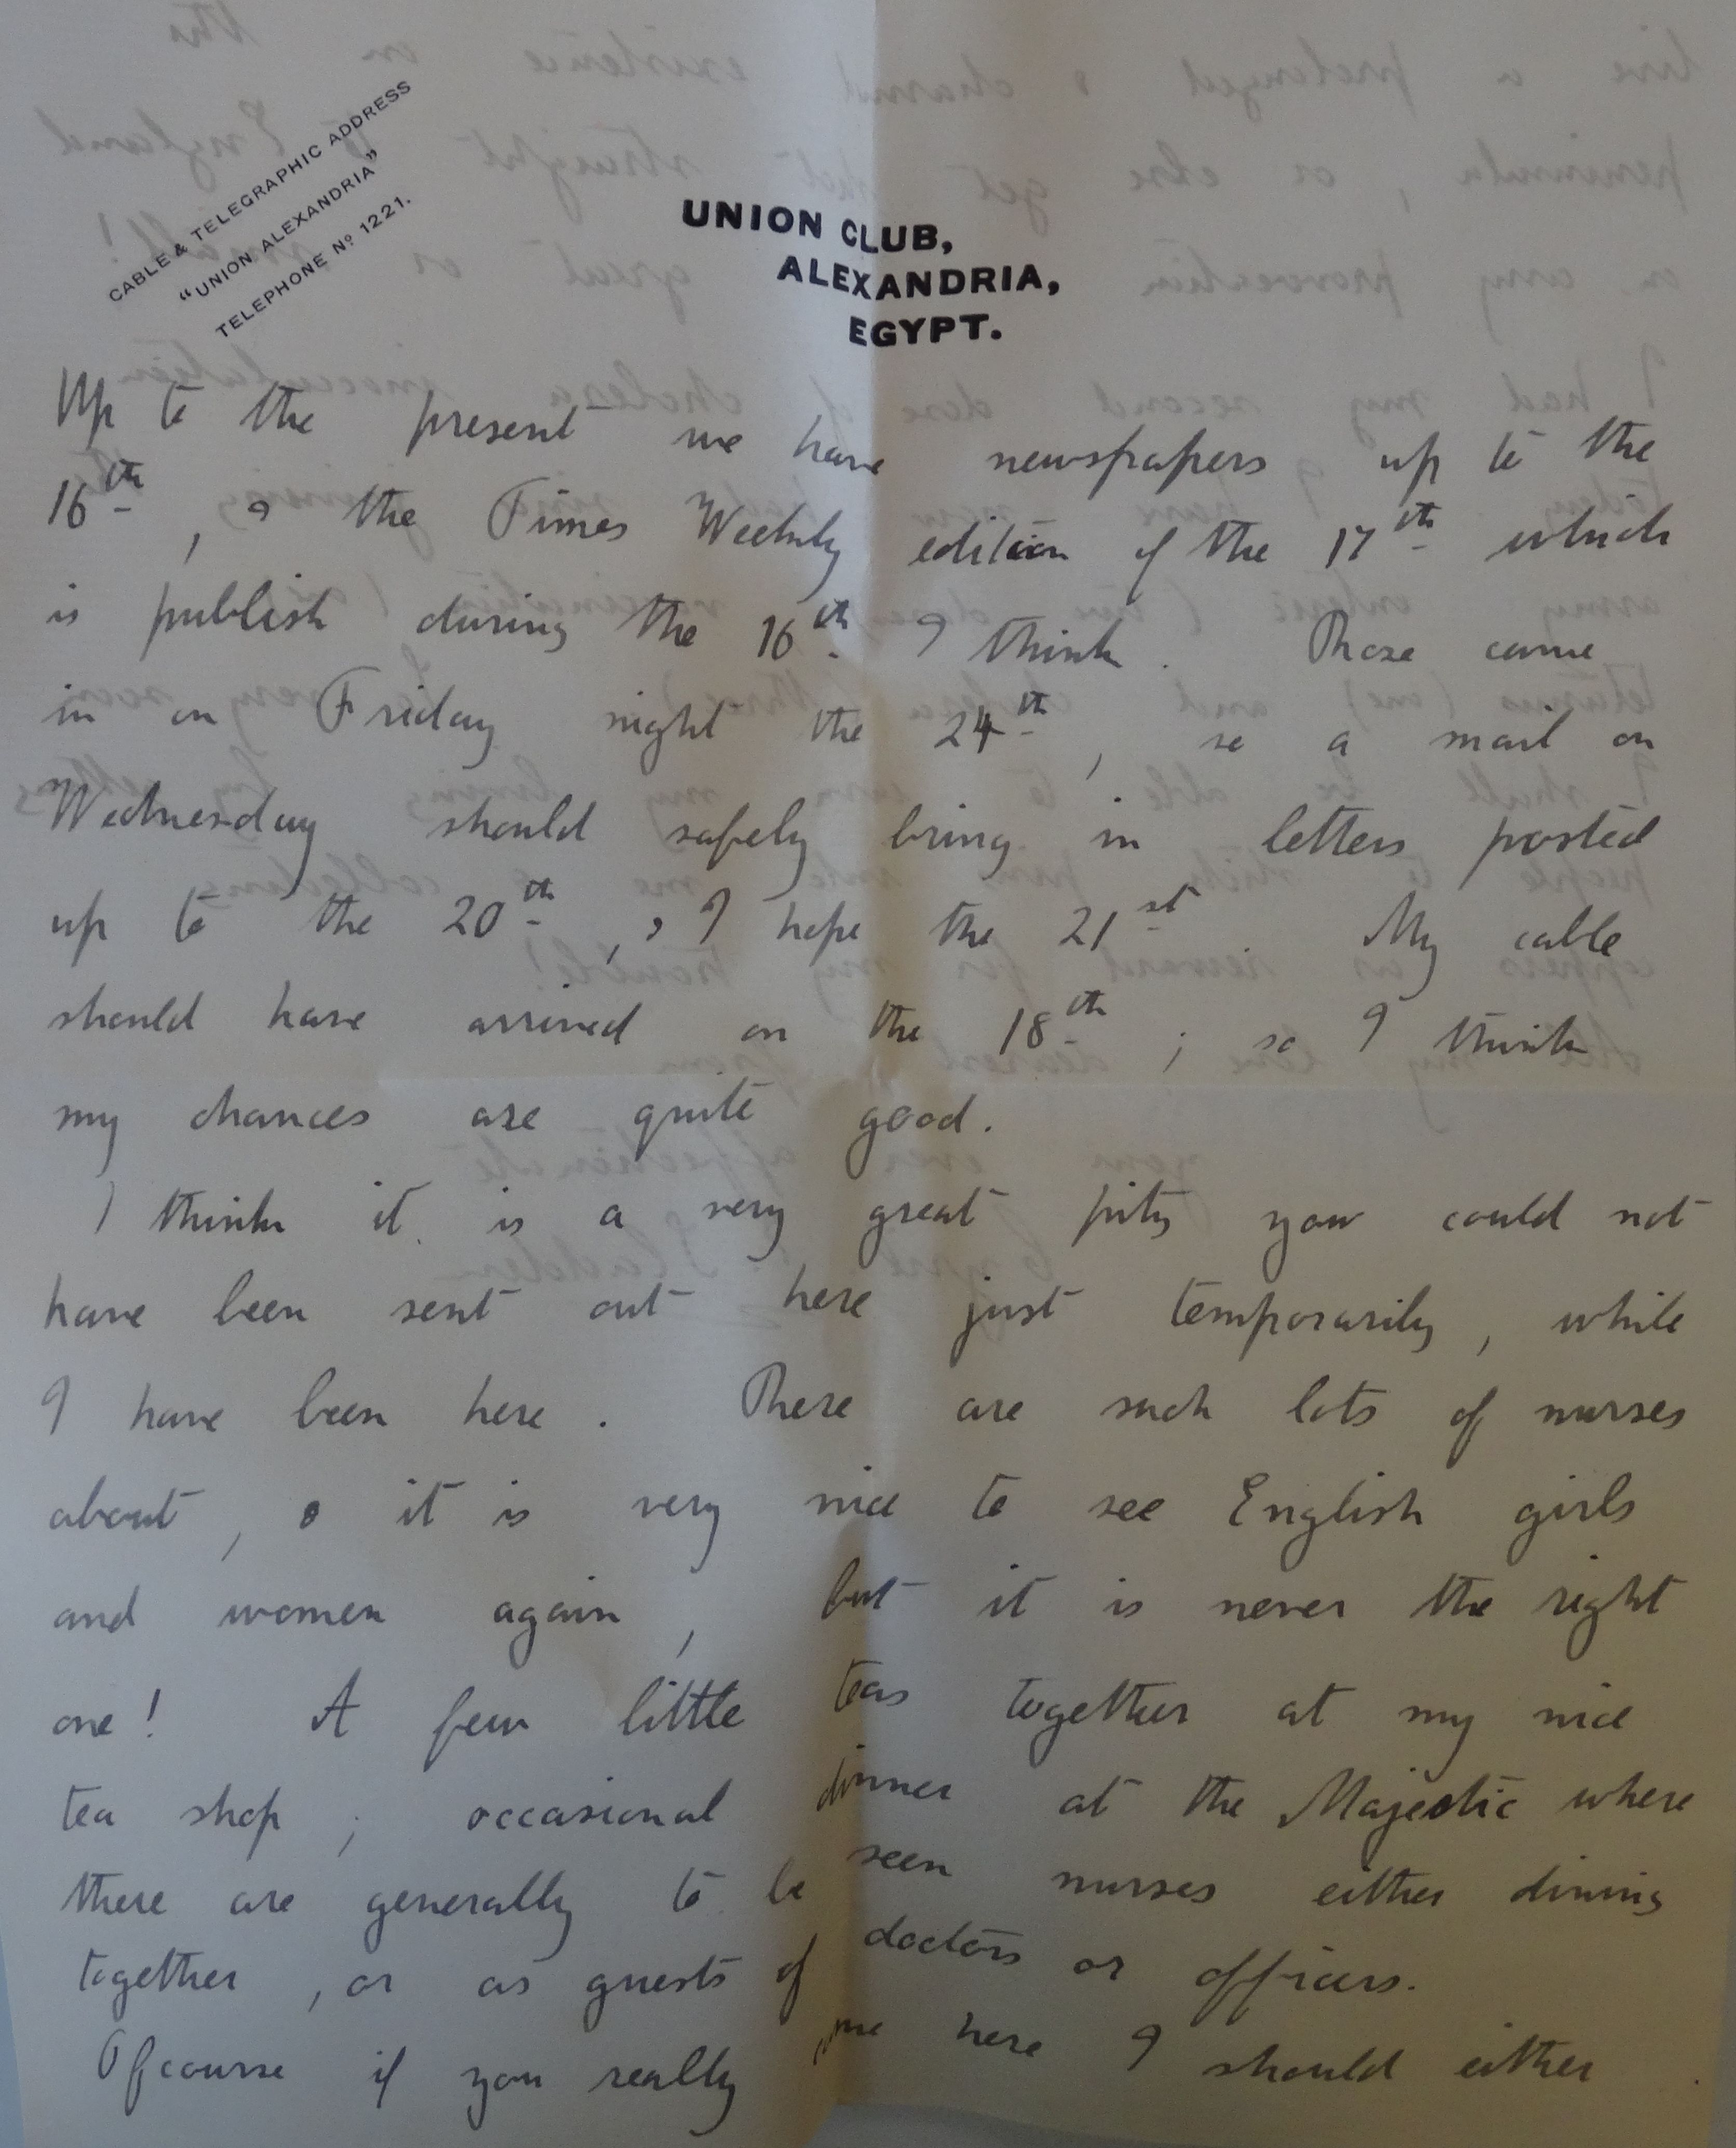 CABLE & TELEGRAPHIC ADDRESS
"UNION ALEXANDRIA"
TELEPHONE Nº 1221.
UNION CLUB,
ALEXANDRIA,
EGYPT.
Up to the present we have newspapers up to the
16th, & the Times Weekly edition of the 17th which
is publish during the 16th I think. These came
in on Friday night the 24th, so a mail on
Wednesday should safely bring in letters posted
up to the 20th, & I hope the 21st My cable
should have arrived on the 18th; so I think
my chances are quite good.
I think it is a very great pity you could not
have been sent out here just temporarily, while
I have been here. There are such lots of nurses
about, & it is very nice to see English girls
and women again, but it is never the right
one! A few little teas together at my nice
tea shop; occasional dinner at the Majestic where
there are generally to be seen nurses either dining
together, or as guests of doctors or officers.
Of course if you really come here I should either